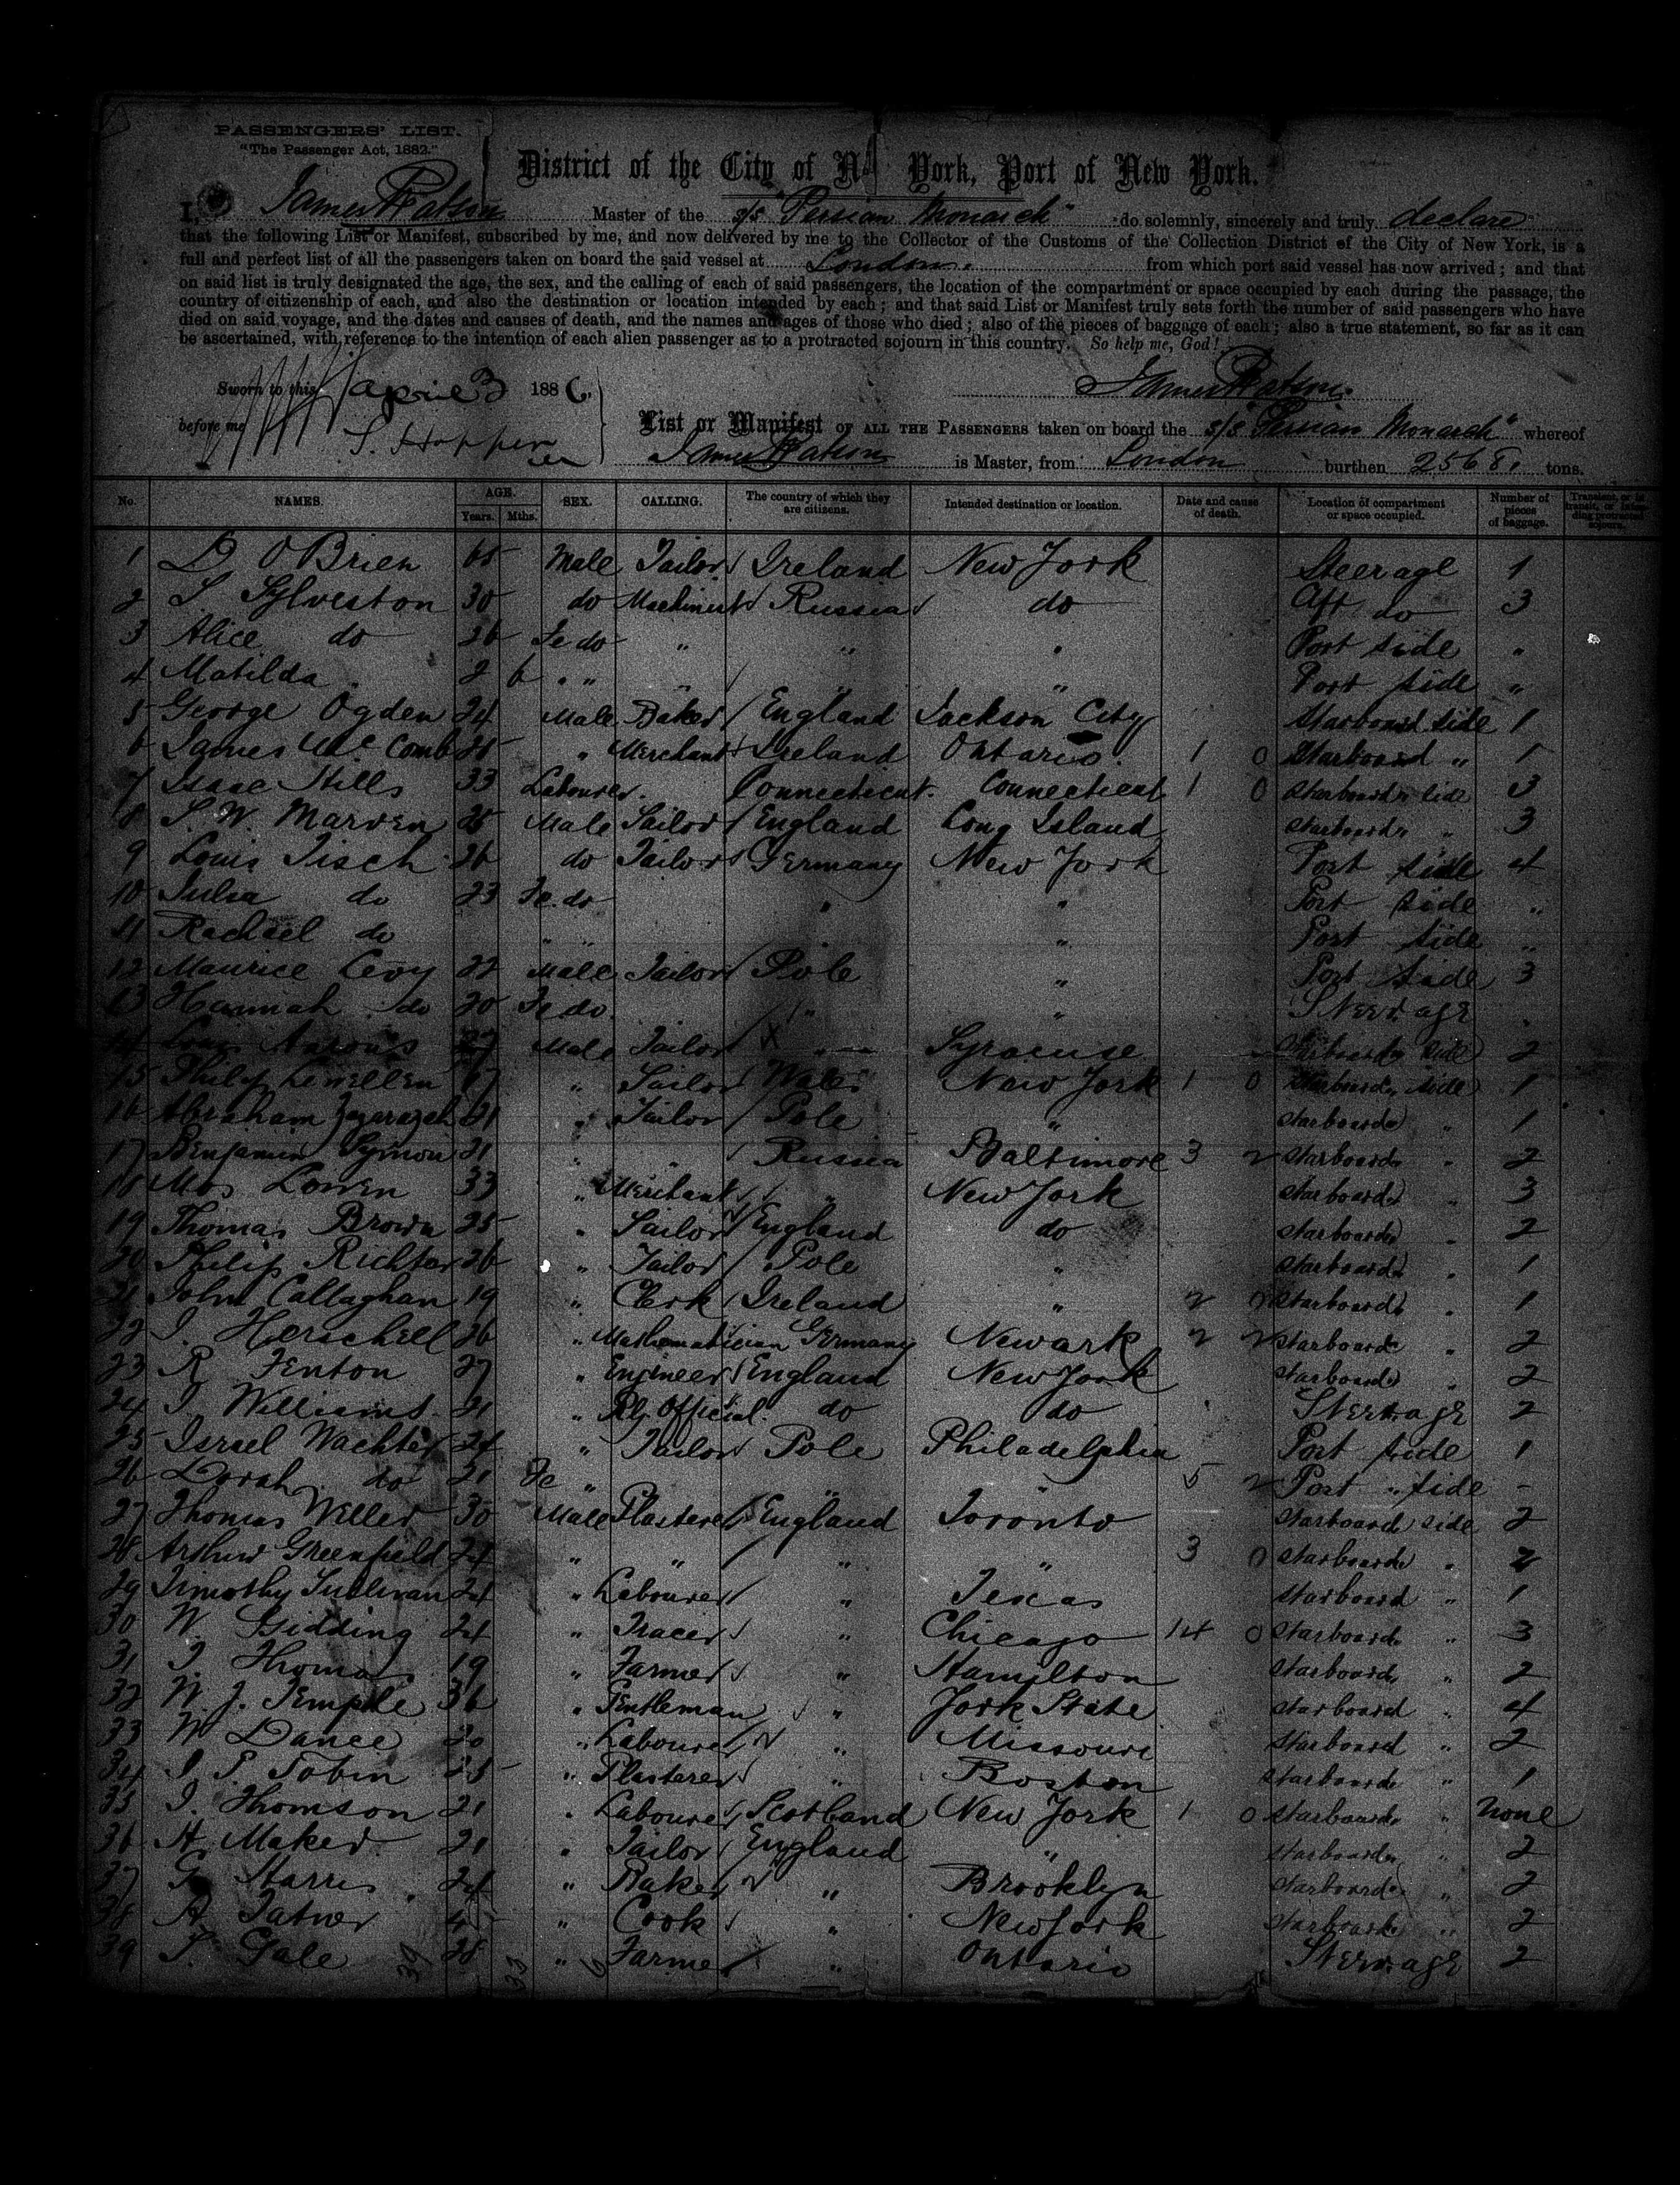 PASSENGERS' LIST.
"The Passenger Act, 1882."
District of the City of N York, Port of New York.
I, James Watson Master of the s/s "Persian Monarch" do solemnly, sincerely and truly declare
that the following List or Manifest, subscribed by me, and now delivered by me to the Collector of the Customs of the Collection District of the City of New York, is a
full and perfect list of all the passengers taken on board the said vessel at London. from which port said vessel has now arrived; and that
on said list is truly designated the age, the sex, and the calling of each of said passengers, the location of the compartment or space occupied by each during the passage, the
country of citizenship of each, and also the destination or location intended by each; and that said List or Manifest truly sets forth the number of said passengers who have
died on said voyage, and the dates and causes of death, and the names and ages of those who died; also of the pieces of baggage of each; also a true statement, so far as it can
be ascertained, with reference to the intention of each alien passenger as to a protracted sojourn in this country. So help me, God!
Sworn to this April 3 1886, James Watson.
before me S. Hopper
List or Manifest OF ALL THE PASSENGERS taken on board the s/s "Persian Monarch" whereof
James Watson is Master, from London burthen 2568. tons.
No. NAMES. AGE. Years. Mths. SEX. CALLING. The country of which they are citizens. Intended destination or location. Date and cause of death. Location of compartment or space occupied. Number of pieces of baggage. Transient, or in transit, or intending protracted sojourn.
1 D. O'Brien Male Tailor Ireland New York Steerage 1
2 S Sylveston 30 do Machinist Russia do Aft do 3
3 Alice do 26 Fe do " " " Port side "
4 Matilda " 2 6 " " " " Port side "
5 George Ogden 24 Male Baker England Jackson City Starboard side 1
6 James McComb 25 " Merchant Ireland Ontario. 1 0 Starboard " 1
7 Isaac Hills 33 Labourer. Connecticut. Connecticut 1 0 Starboard side 3
8 S. W. Marven 28 Male Sailor England Long Island Starboard " 3
9 Louis Tisch 26 do Tailor Germany New York Port side 4
10 Julia do 23 Fe. do " " Port side "
11 Rachael do " " " Port side "
12 Maurice Levy 22 Male Tailor Pole " Port side 3
13 Hannah do 20 Fe do " " Steerage
14 Louis Aarons 27 Male Tailor X " Syracuse Starboard side 2
15 Philip Lewellen " Sailor Wales New York 1 0 Starboard side 1
16 Abraham 21 " Tailor Pole " Starboard " 1
17 Benjamin Symon 21 " " Russia Baltimore 3 2 Starboard " 2
18 Mos Lowen 33 " Merchant " New York Starboard " 3
19 Thomas Brown 25 " Sailor England do Starboard " 2
20 Philip Richter 26 " Tailor Pole " Starboard " 1
21 John Callaghan 19 " Clerk Ireland " 2 2 Starboard " 1
22 I. Herschell 26 " Mathematician Germany Newark 2 2 Starboard " 2
23 R Fenton 27 " Engineer England New York Starboard " 2
24 J Williams 21 " Rly Official. do do Steerage 2
25 Israel Wachter 24 " Tailor Pole Philadelphia Port side 1
26 Dorah do 21 Fe " " 5 2 Port side -
27 Thomas Weller 30 Male Plasterer England Toronto Starboard side 2
28 Arthur Greenfield 24 " " " " 3 0 Starboard " 2
29 Timothy Sullivan 24 " Labourer " Texas Starboard " 1
30 W. Gidding 24 " Tracer " Chicago 14 0 Starboard " 3
31 J Thomas 19 " Farmer " Hamilton Starboard " 2
32 W. J. Temple 36 " Gentleman " York State Starboard " 4
33 W Dance 20 " Labourer " Missouri Starboard " 2
34 J P. Tobin 25 " Plasterer " Boston Starboard " 1
35 J. Thomson 21 " Labourer Scotland New York 1 0 Starboard " None
36 H Maker 21 " Tailor England " Starboard " 2
37 G Harris 24 " Baker " Brooklyn Starboard " 2
38 A Tatner " Cook " New York Starboard " 2
39 S. Gale 28 " Farmer " Ontario Steerage 2
39 33 6